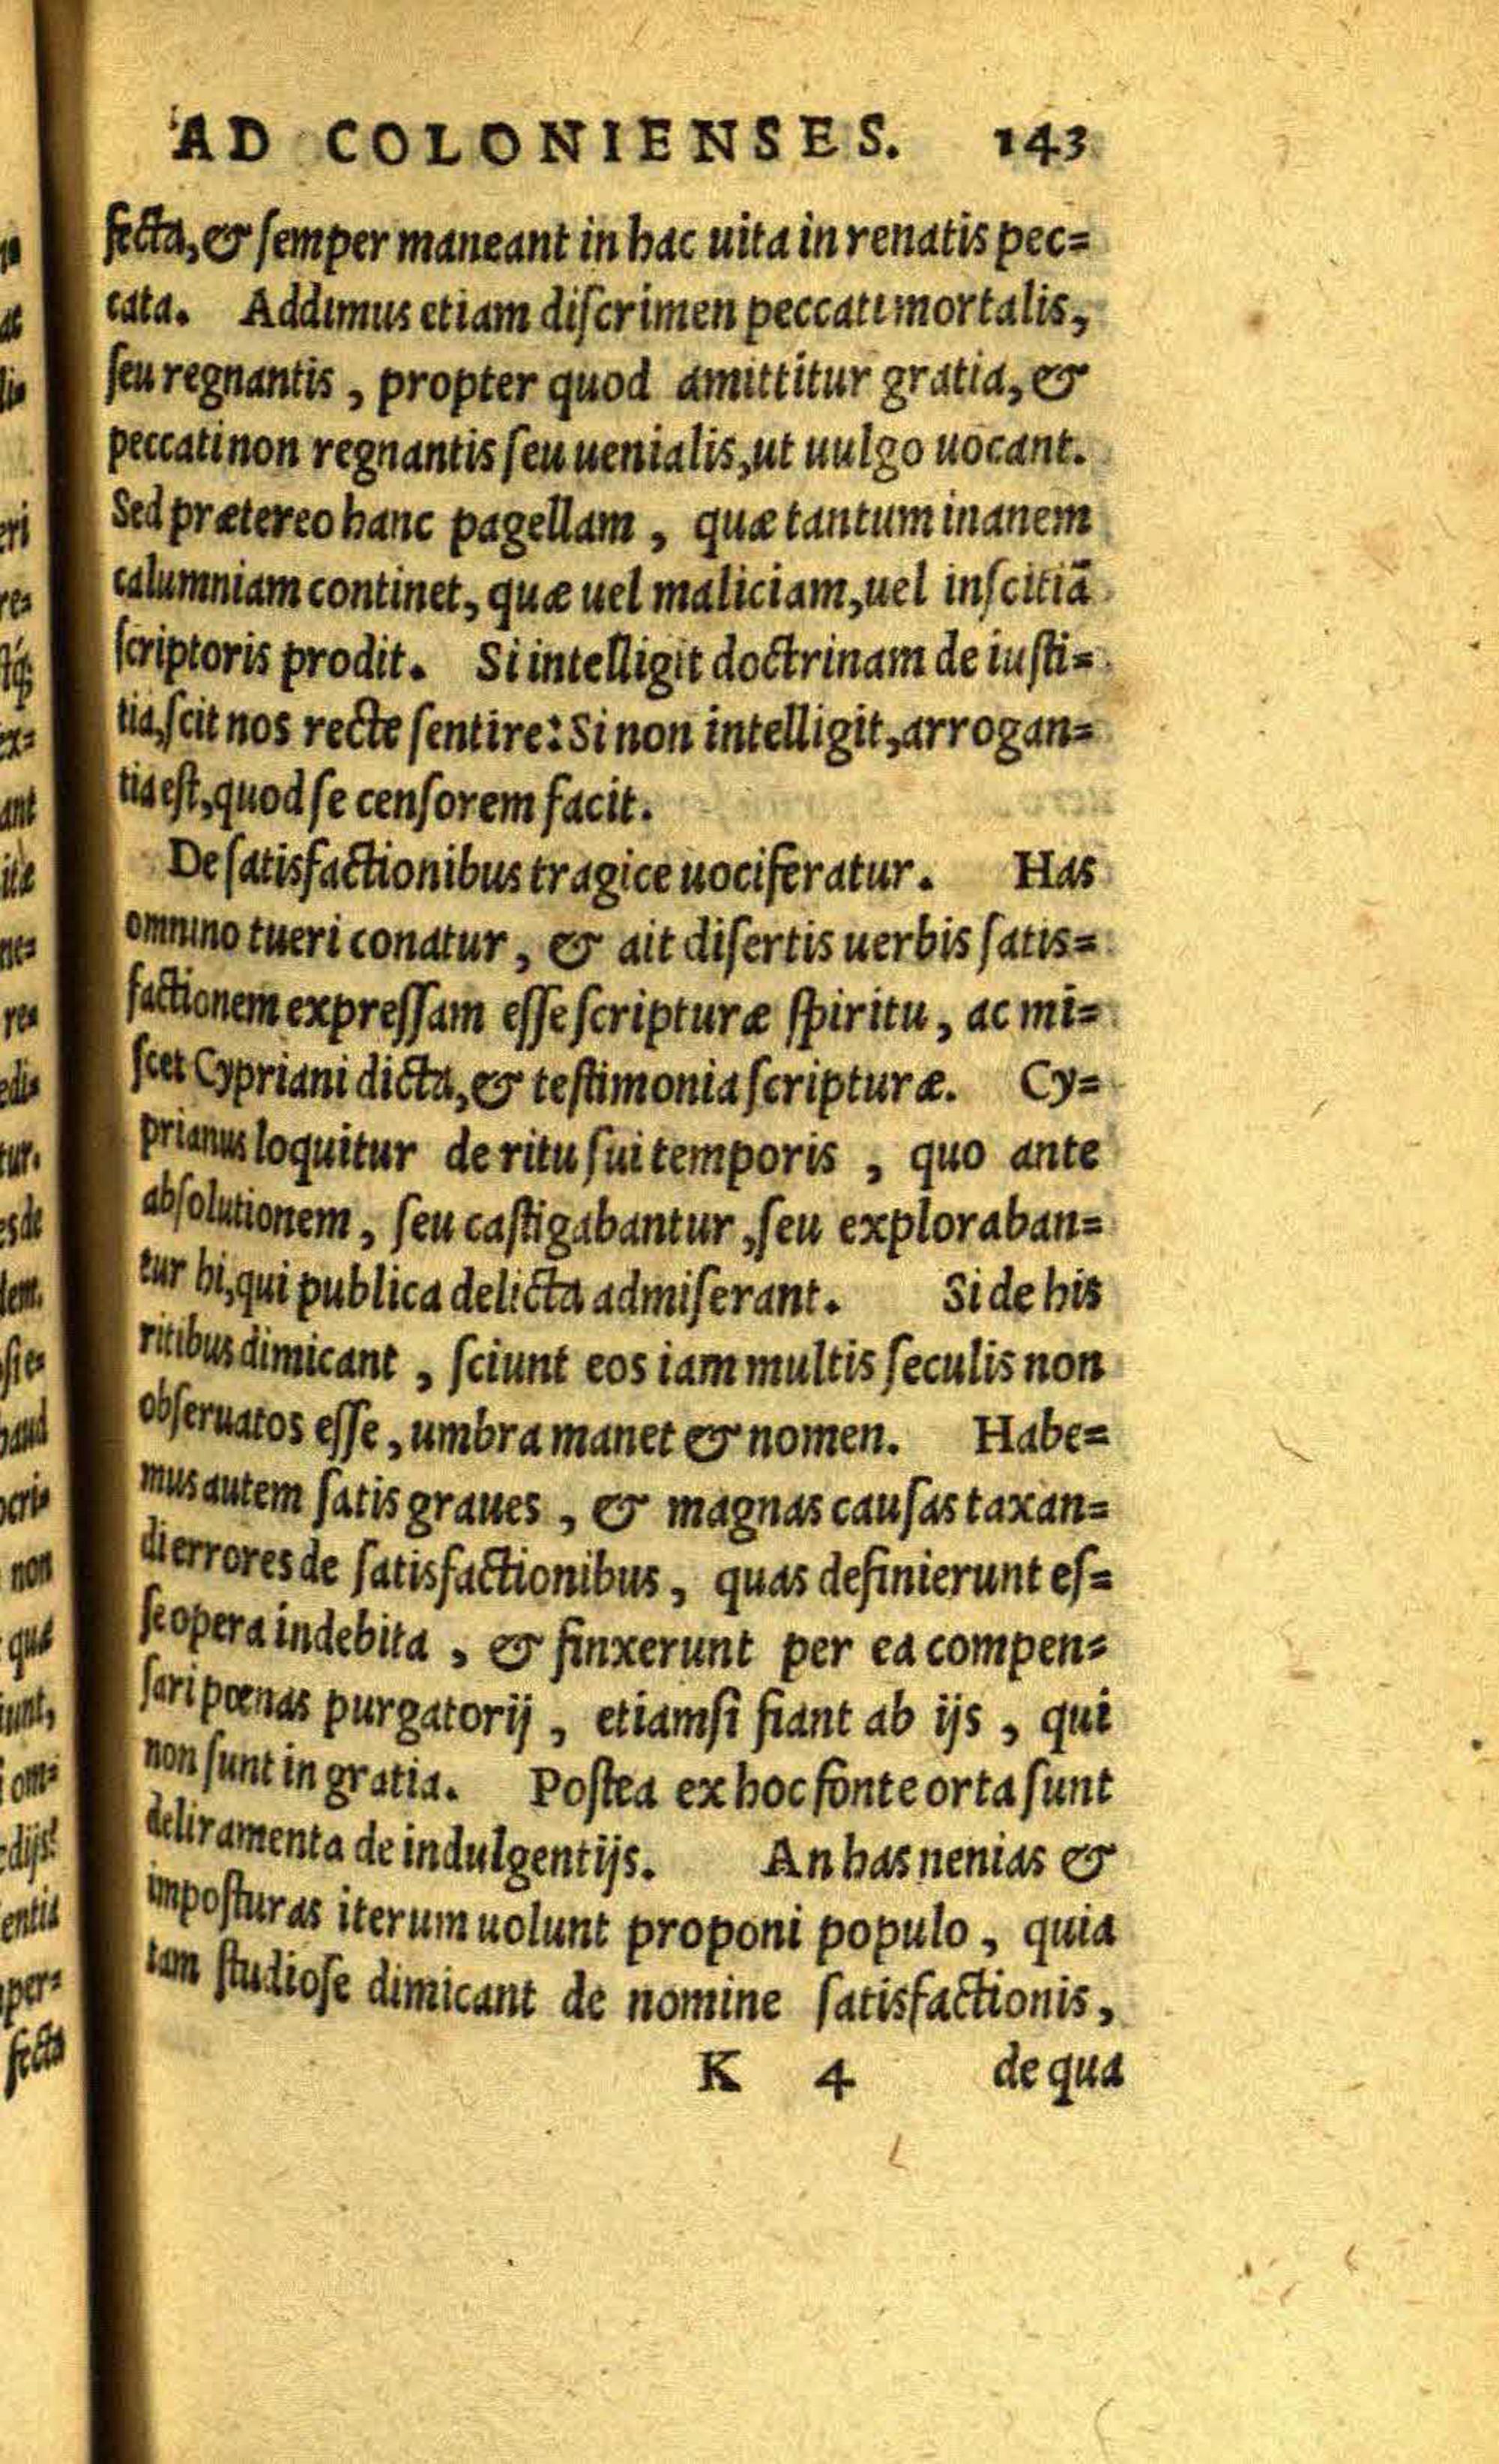 AD COLONIENSES. 143
fecta, & ſemper maneant in hac uita in renatis pec=
cata. Addimus etiam diſcrimen peccati mortalis,
ſeu regnantis, propter quod amittitur gratia, &
peccati non regnantis ſeu uenialis, ut uulgo uocant.
Sed prætereo hanc pagellam, quæ tantum inanem
calumniam continet, quæ uel maliciam, uel inſcitiā
ſcriptoris prodit. Si intelligit doctrinam de iuſti=
tia, ſcit nos recte ſentire: Si non intelligit, arrogan=
tia eſt, quod ſe cenſorem facit.
De ſatisfactionibus tragice uociferatur. Has
omnino tueri conatur, & ait diſertis uerbis ſatis=
factionem expreſſam eſſe ſcripturæ ſpiritu, ac mi=
ſcet Cypriani dicta, & teſtimonia ſcripturæ. Cy=
prianus loquitur de ritu ſui temporis, quo ante
abſolutionem, ſeu caſtigabantur, ſeu exploraban=
tur hi, qui publica delicta admiſerant. Si de his
ritibus dimicant, ſciunt eos iam multis ſeculis non
obſeruatos eſſe, umbra manet & nomen. Habe=
mus autem ſatis graues, & magnas cauſas taxan=
di errores de ſatisfactionibus, quas definierunt eſ=
ſe opera indebita, & finxerunt per ea compen=
ſari pœnas purgatorij, etiamſi fiant ab ijs, qui
non ſunt in gratia. Poſtea ex hoc fonte orta ſunt
deliramenta de indulgentijs. An has nenias &
impoſturas iterum uolunt proponi populo, quia
tam ſtudioſe dimicant de nomine ſatisfactionis,
K 4 de qua